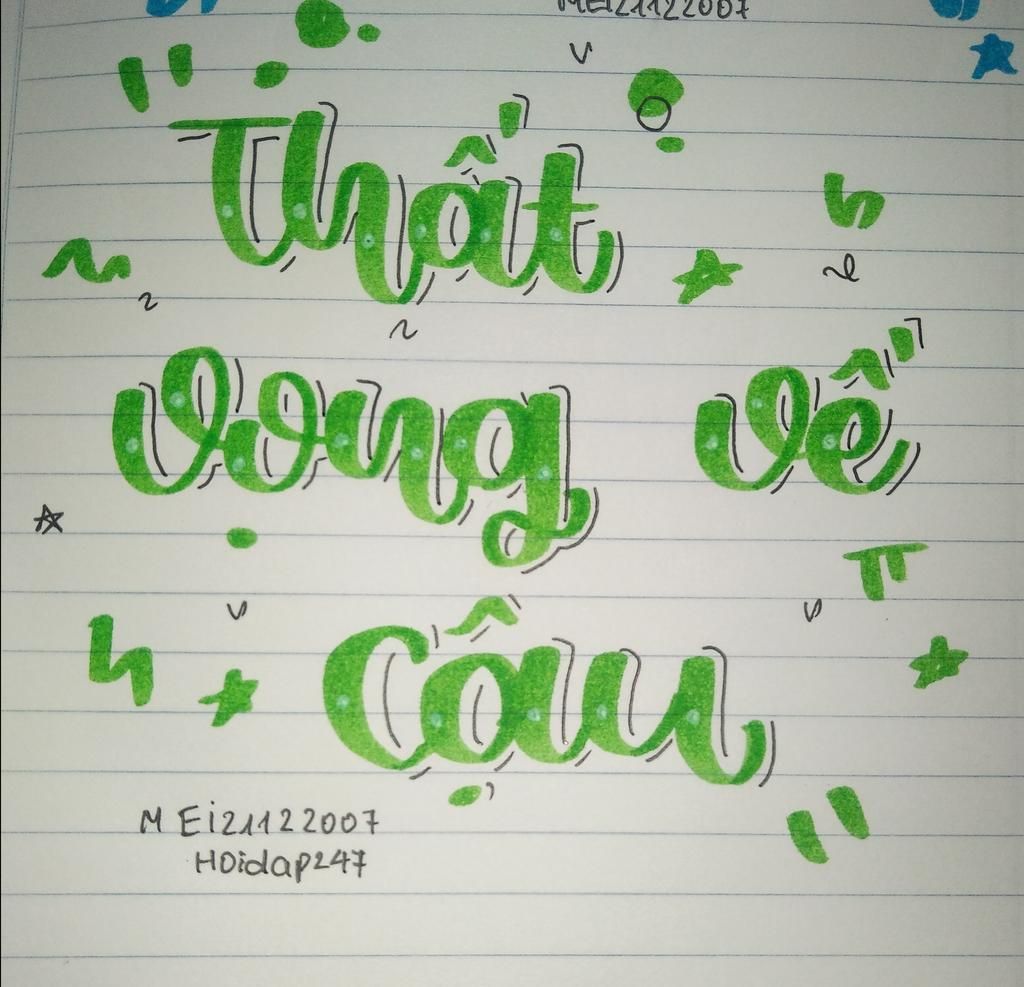 MEi21122007
Thất
vọng về
Cậu
MEi21122007
HOidap247